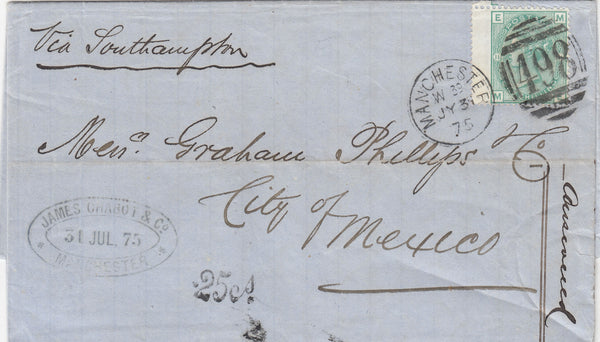 Via Southampton
E M
M
498
MANCHESTER
JY 31
75
Mess.rs Graham Phillips & Co
1
City of Mexico
JAMES CHABOT & Co
31 JUL. 75
MANCHESTER
25cs.
Answered